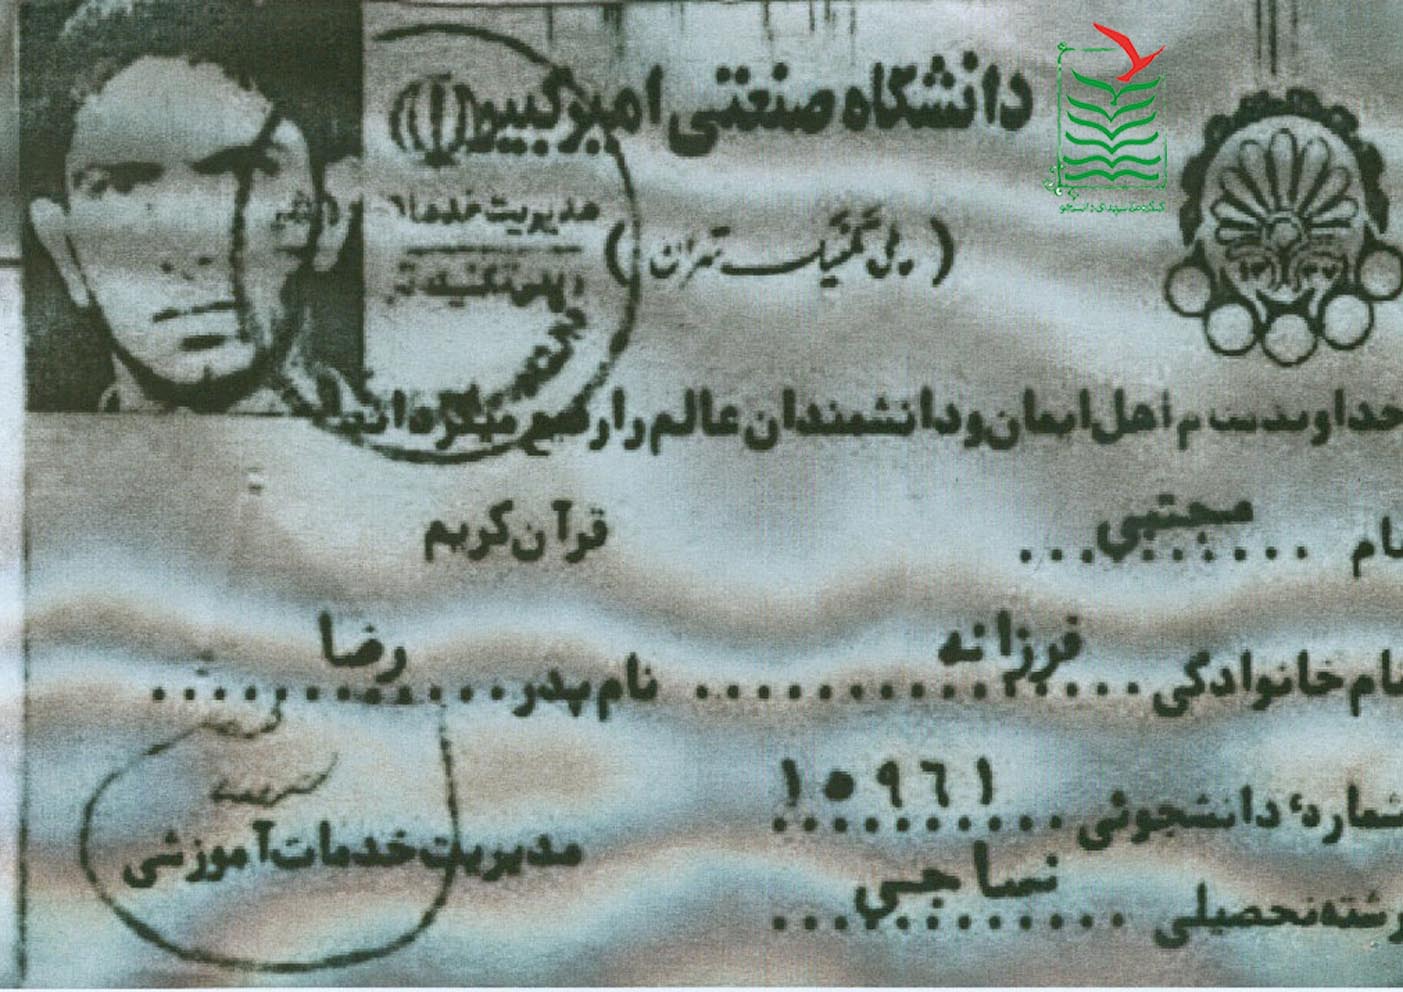 دانشگاه صنعتی امیرکبیر
(پلی تکنیک تهران)
مدیریت خدمات
و پلی تکنیک
۱۳۳۷
خداوند مقام اهل ایمان و دانشمندان عالم را رفیع میگرداند
قرآن کریم
نام مجتبی
نام خانوادگی فرزانه نام پدر رضا
شماره دانشجوئی ۱۵۹۶۱
رشته تحصیلی نساجی
مدیریت خدمات آموزشی